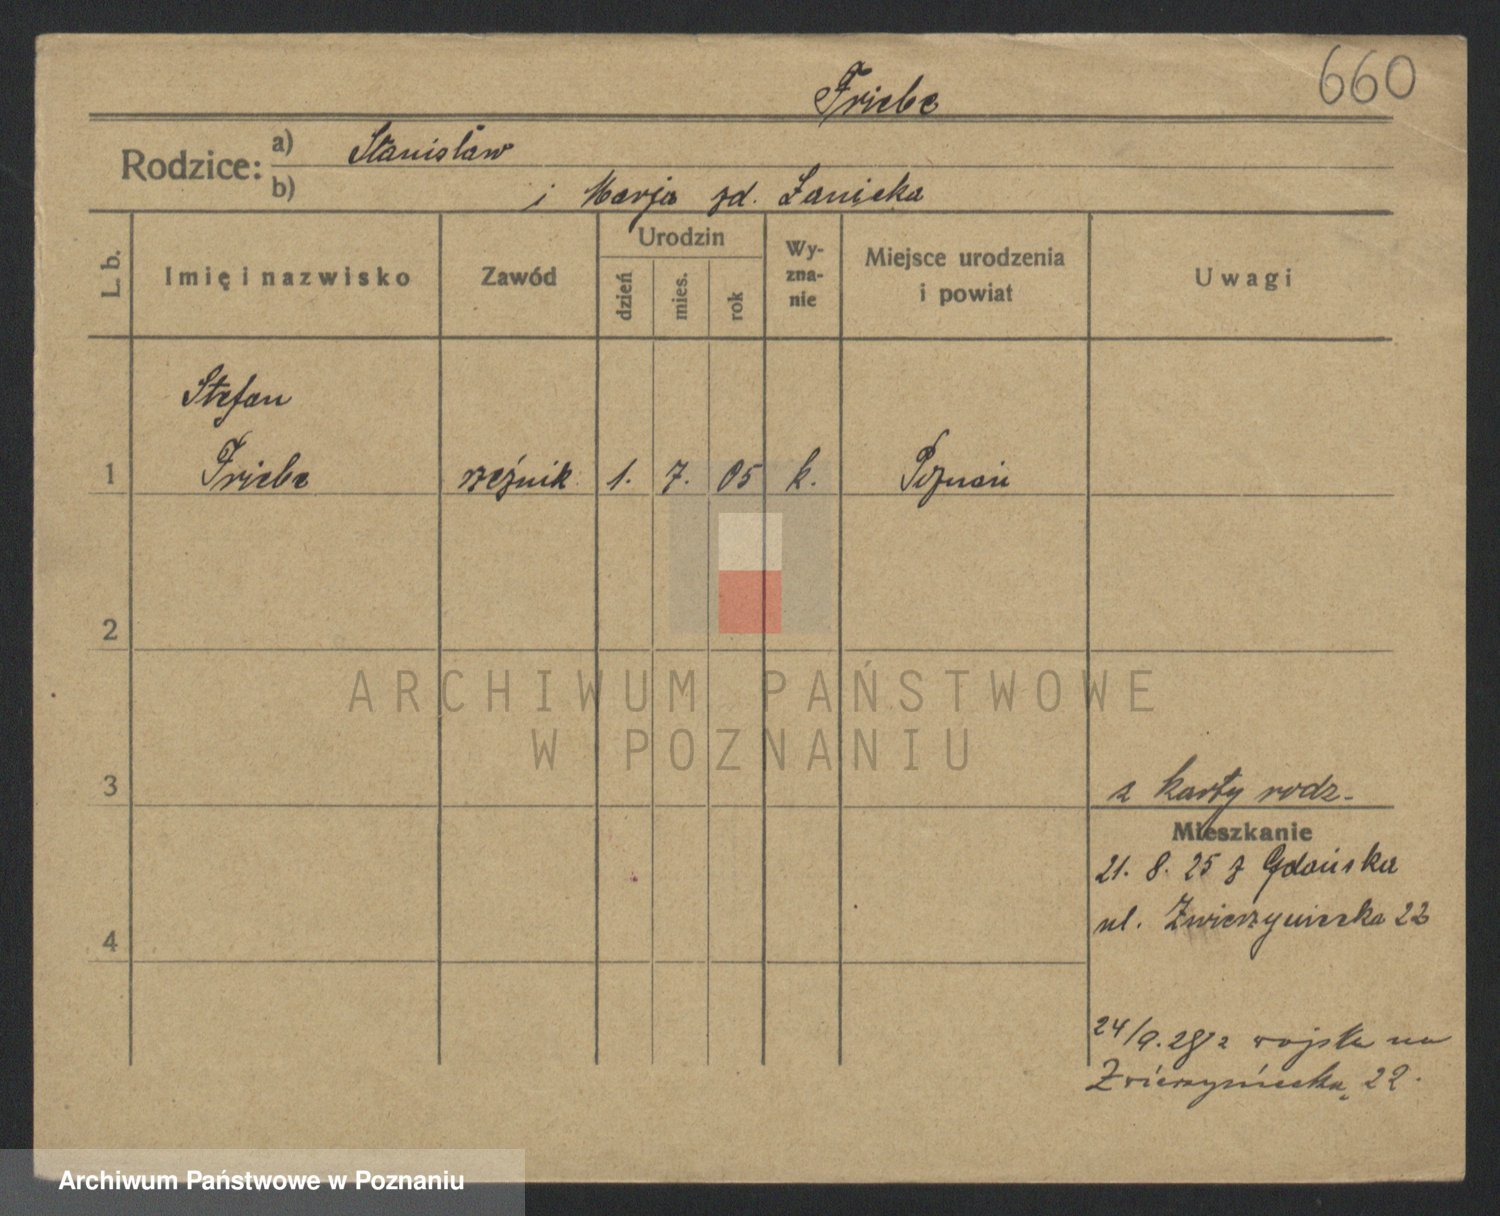 660
Friebe
Rodzice: a) Stanisław
b) i Marja zd. Łanięka
L. b. Imię i nazwisko Zawód Urodzin dzień mies. rok Wyzna-nie Miejsce urodzenia i powiat Uwagi
Stefan
1 Friebe rzeźnik 1. 7. 05 k. Poznań
2
ARCHIWUM PAŃSTWOWE
W POZNANIU
3 z karty rodz.
Mieszkanie
21. 8. 25 z Gdańska
ul. Zwierzyniecka 22
4
24/9. 28 z wojska na
Zwierzyniecką 22.
Archiwum Państwowe w Poznaniu